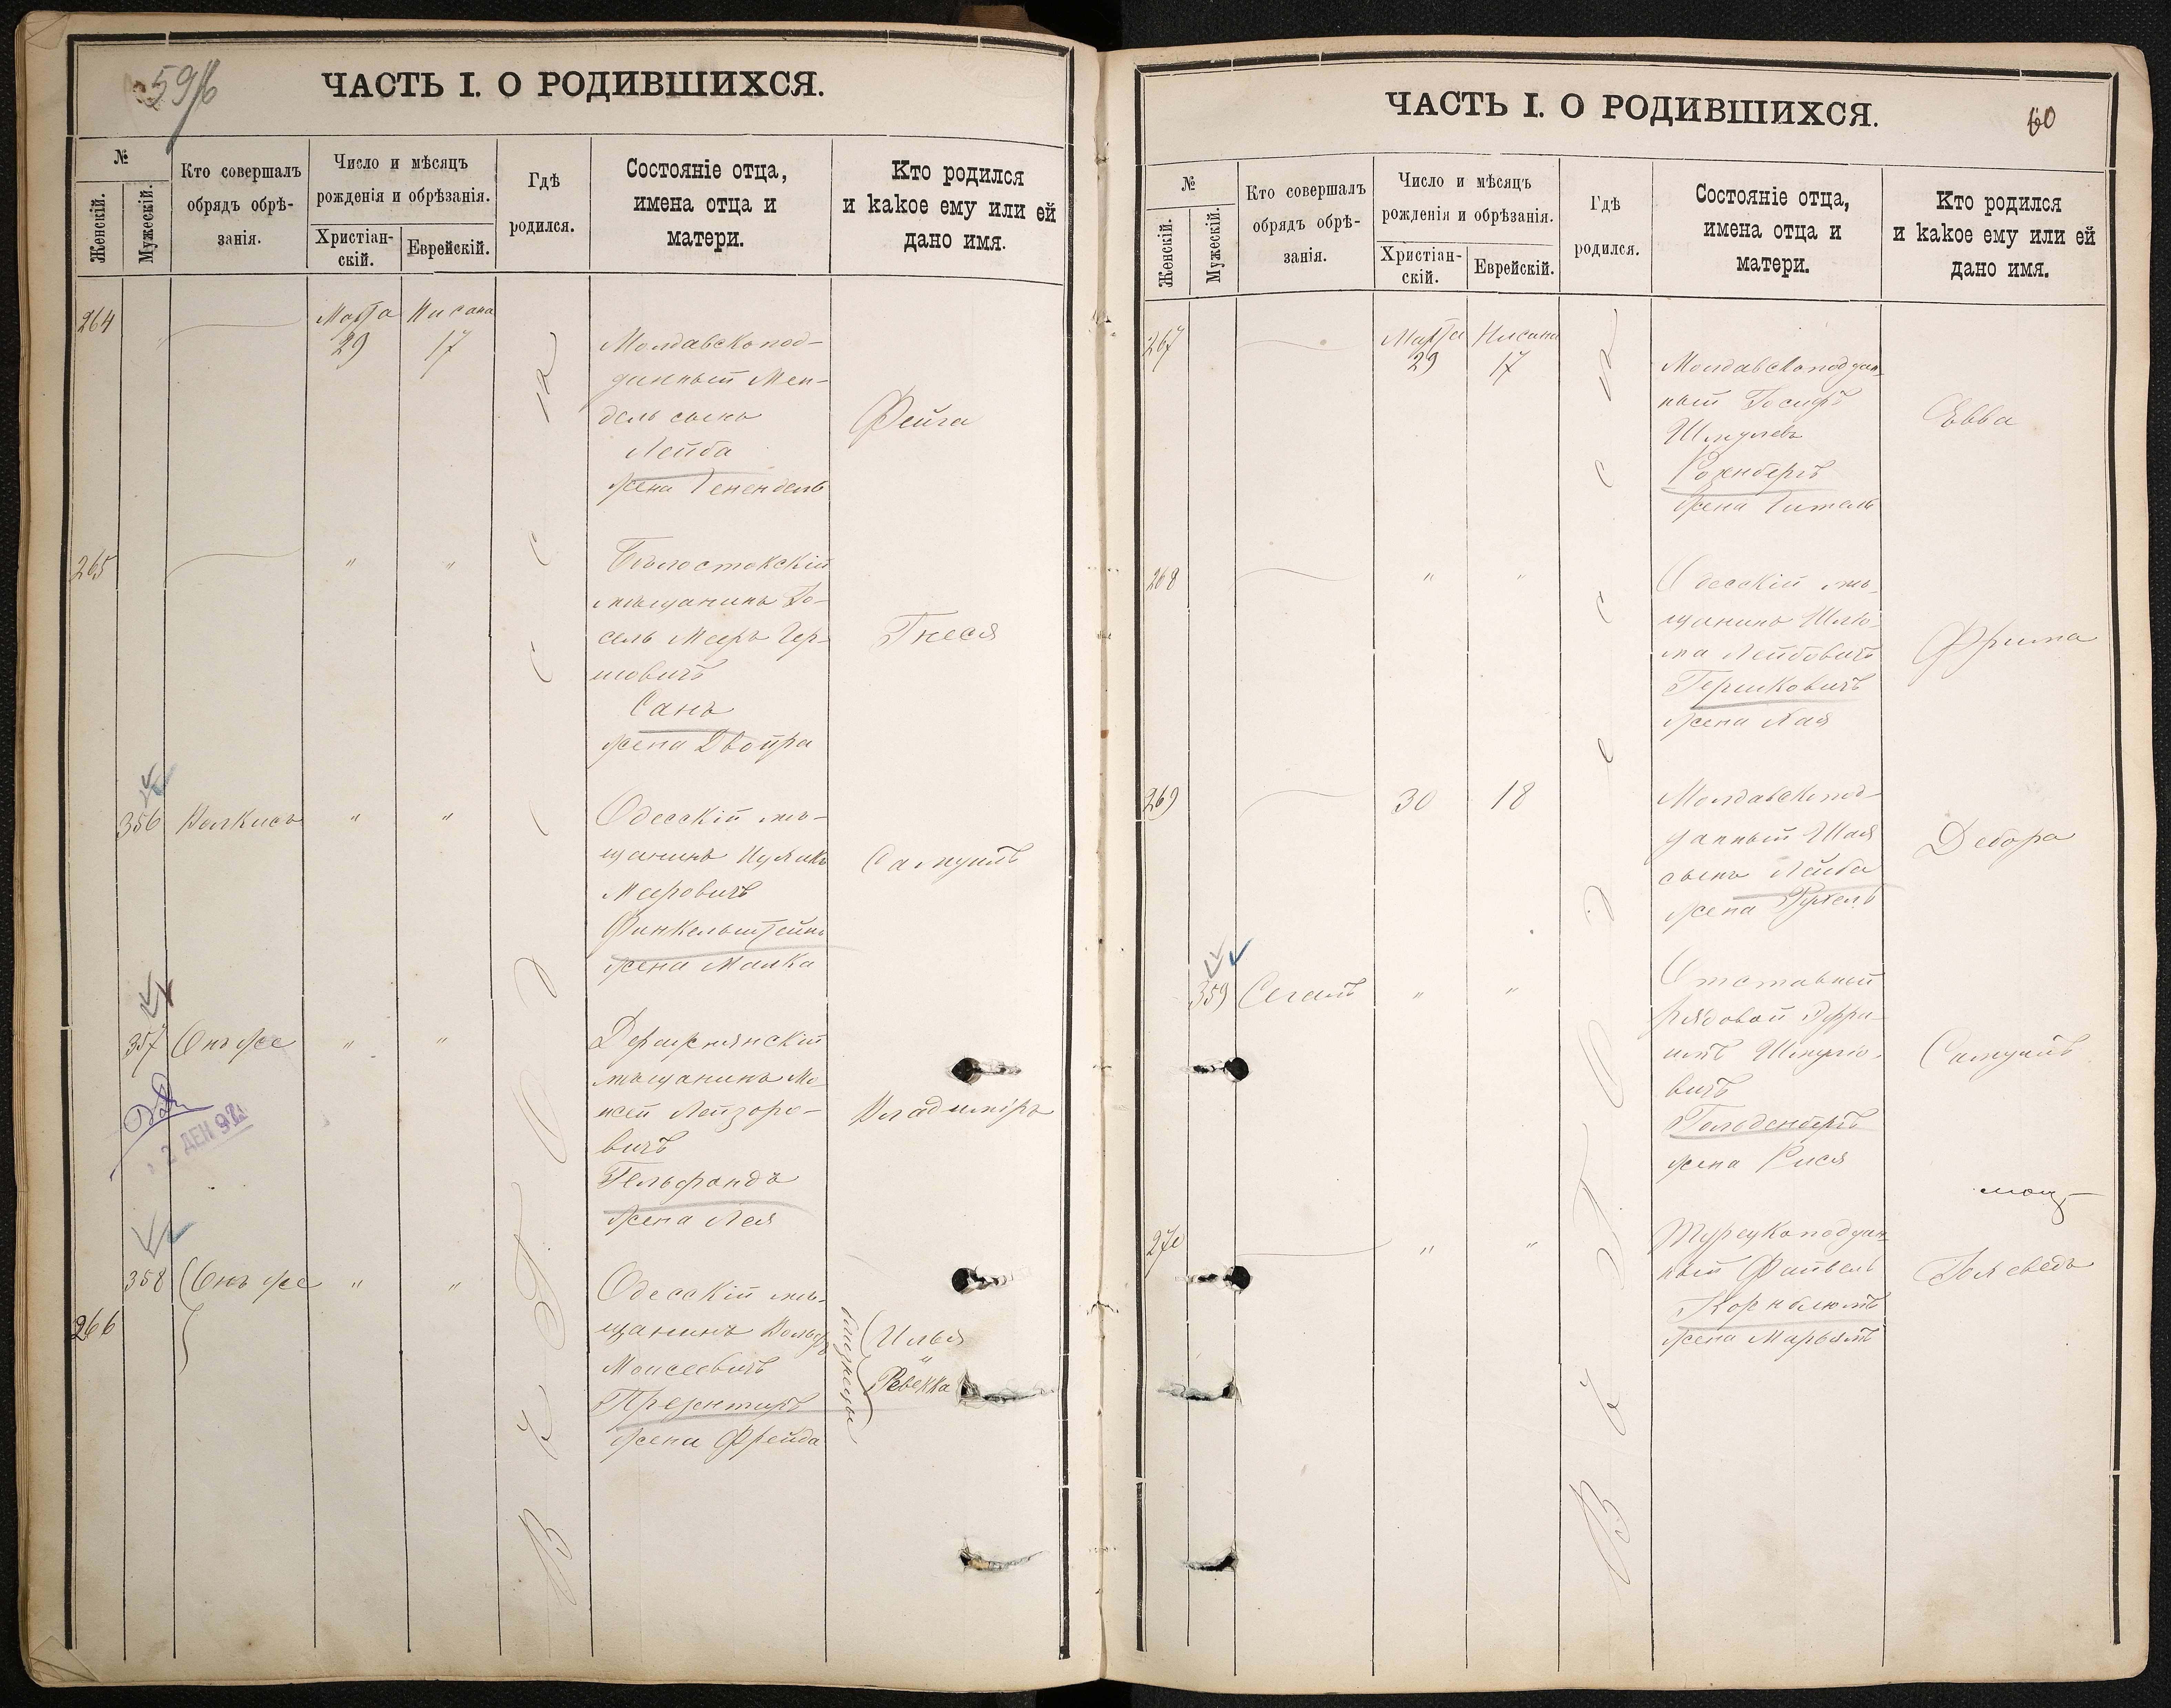 59/б
ЧАСТЬ I. О РОДИВШИХСЯ.
№
Женскій.
Мужескій.
Кто совершалъ
обрядъ обрѣ-
занія.
Число и мѣсяцъ
рожденія и обрѣзанія.
Христіан-
скій.
Еврейскій.
Гдѣ
родился.
Состояніе отца,
имена отца и
матери.
Кто родился
и какое ему или ей
дано имя.
Въ г. Одессѣ
264
Марта Нисана
29 17
Молдавскопод-
данный Мен-
дель сынъ
Лейба
жена Генендель
Фейга
265
" "
Бѣлостокскій
мѣщанинъ Іо-
сель Мееръ Гер-
шовичъ
Санъ
жена Двойра
Гнеся
356 Волкисъ " "
Одесскій мѣ-
щанинъ Ицхакъ
Мееровичъ
Финкельштейнъ
жена Малка
Самуилъ
357 Онъ же " "
Деражнянскій
мѣщанинъ Мо-
исей Лейзоро-
вичъ
Гельфандъ
жена Лея
Владиміръ
2 ДЕН 92
358 Онъ же " "
266
Одесскій мѣ-
щанинъ Вольфъ
Моисеевичъ
Презентъ
жена Фрейда
близнецы
Илья
"
Ревекка
60
ЧАСТЬ I. О РОДИВШИХСЯ.
№
Женскій.
Мужескій.
Кто совершалъ
обрядъ обрѣ-
занія.
Число и мѣсяцъ
рожденія и обрѣзанія.
Христіан-
скій.
Еврейскій.
Гдѣ
родился.
Состояніе отца,
имена отца и
матери.
Кто родился
и какое ему или ей
дано имя.
Въ г. Одессѣ
267
Марта Нисана
29 17
Молдавскоподдан-
ный Іосифъ
Шмулевъ
Розенбергъ
жена Гитель
Евва
268
" "
Одесскій мѣ-
щанинъ Шлё-
ма Лейбовичъ
Гершковичъ
жена Хая
Фрима
269
30 18
Молдавскопод-
данный Шая
сынъ Лейба
жена Рухель
Дебора
359 Сегалъ " "
Отставной
рядовой Эфра-
имъ Шмулё-
вичъ
Голоденбергъ
жена Рися
Самуилъ
270
" "
Турецкоподдан-
ный Файвель
Корнблюмъ
жена Марьямъ